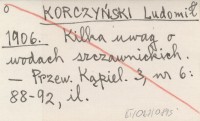 KORCZYŃSKI Ludomił
1906. Kilka uwag o
wodach szczawnickich.
– Przew. Kąpiel. 3, nr 6:
88-92, il.